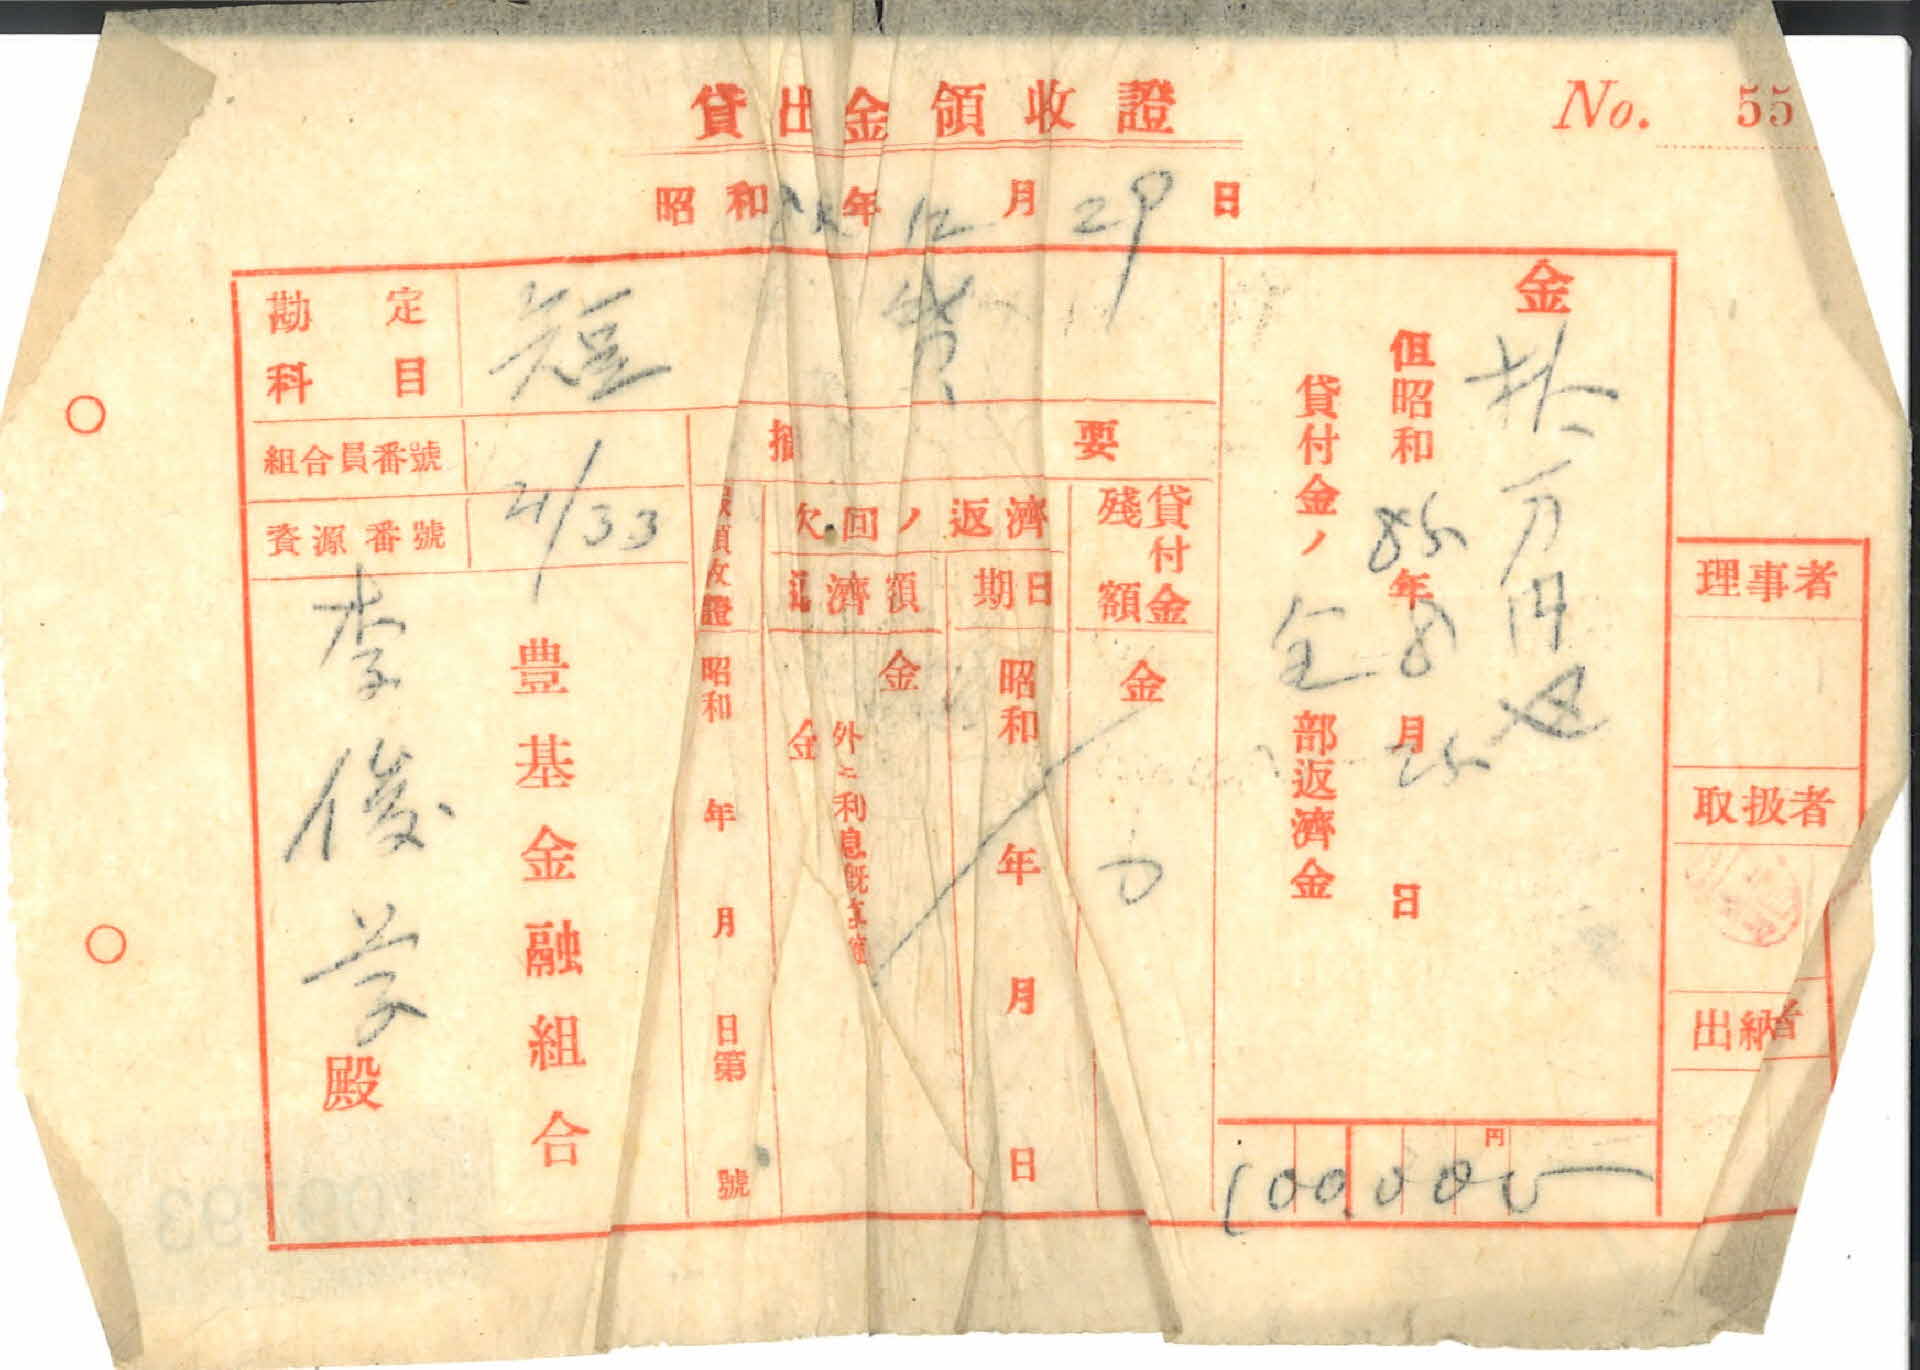 貸出金領收證
No. 55
昭和 年 12 月 29 日
金 拾万円也
但昭和 85 年 8 月 25 日
貸付金ノ全部返濟金
円
100,000
理事者
取扱者
出納者
勘定科目
短 貸
組合員番號
資源番號
21/33
摘要
貸付金殘額
金
0
次回ノ返濟
期日
昭和 年 月 日
返濟額
金
外ニ利息
金
領收證
昭和 年 月 日第 號
豊基金融組合
李俊学殿